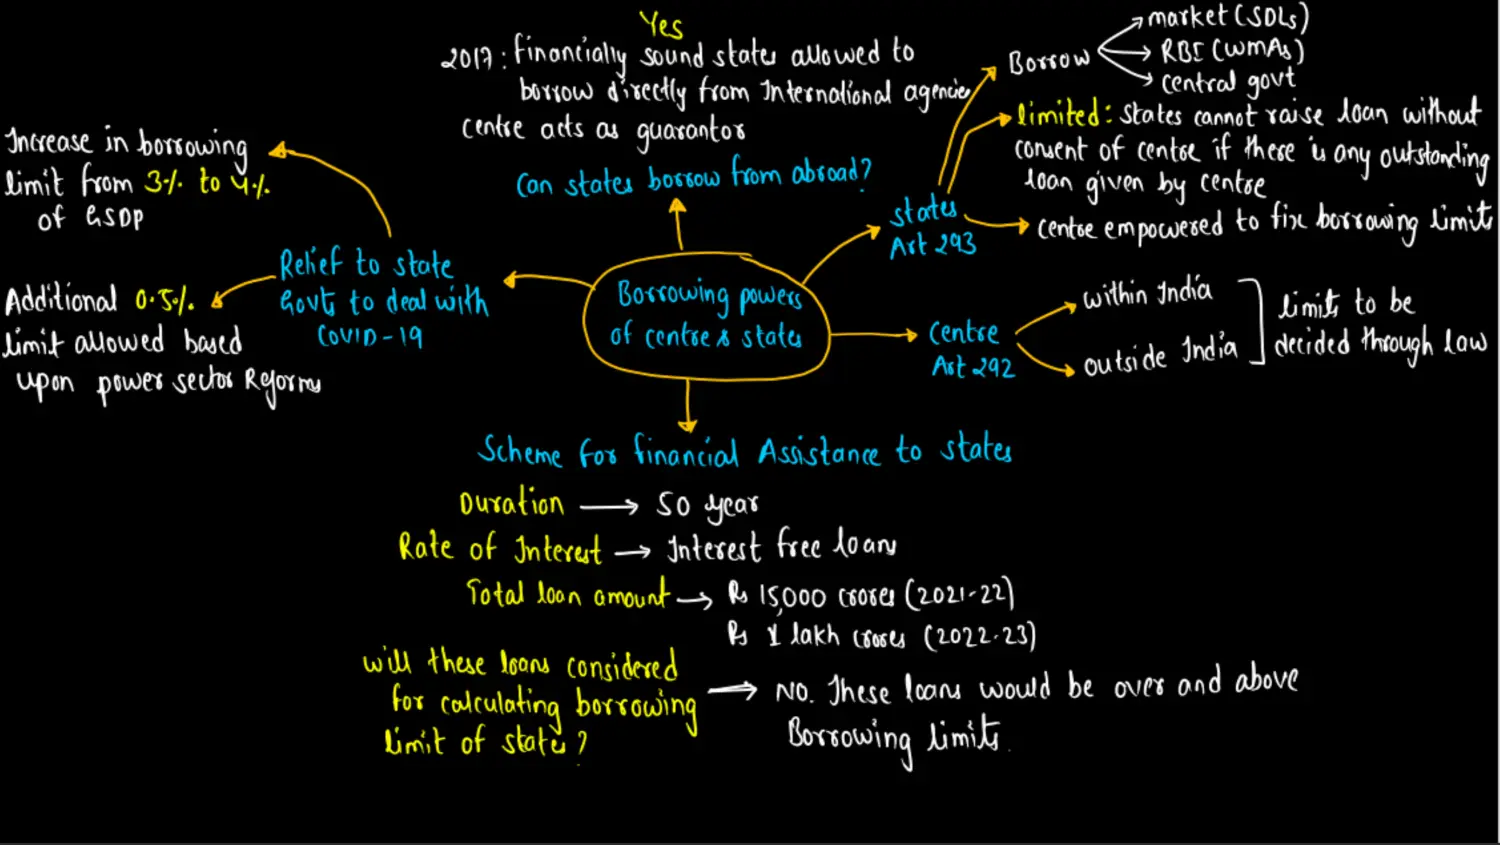 Yes
2017: Financially sound states allowed to
borrow directly from International agencies
Centre acts as guarantor
Can states borrow from abroad?
Borrow
market (SDLs)
RBI (WMAs)
Central govt
limited: States cannot raise loan without
consent of centre if there is any outstanding
loan given by centre
States
Art 293
Centre empowered to fix borrowing limits
Increase in borrowing
limit from 3% to 4%
of GSDP
Relief to state
Govts to deal with
COVID-19
Additional 0.5%
limit allowed based
upon power sector Reforms
Borrowing powers
of centre & states
Centre
Art 292
within India
outside India
limits to be
decided through law
Scheme for financial Assistance to states
Duration → 50 year
Rate of Interest → Interest free loans
Total loan amount → Rs 15,000 crores (2021-22)
Rs 1 lakh crores (2022-23)
Will these loans considered
for calculating borrowing
limit of states?
NO. These loans would be over and above
Borrowing limits.